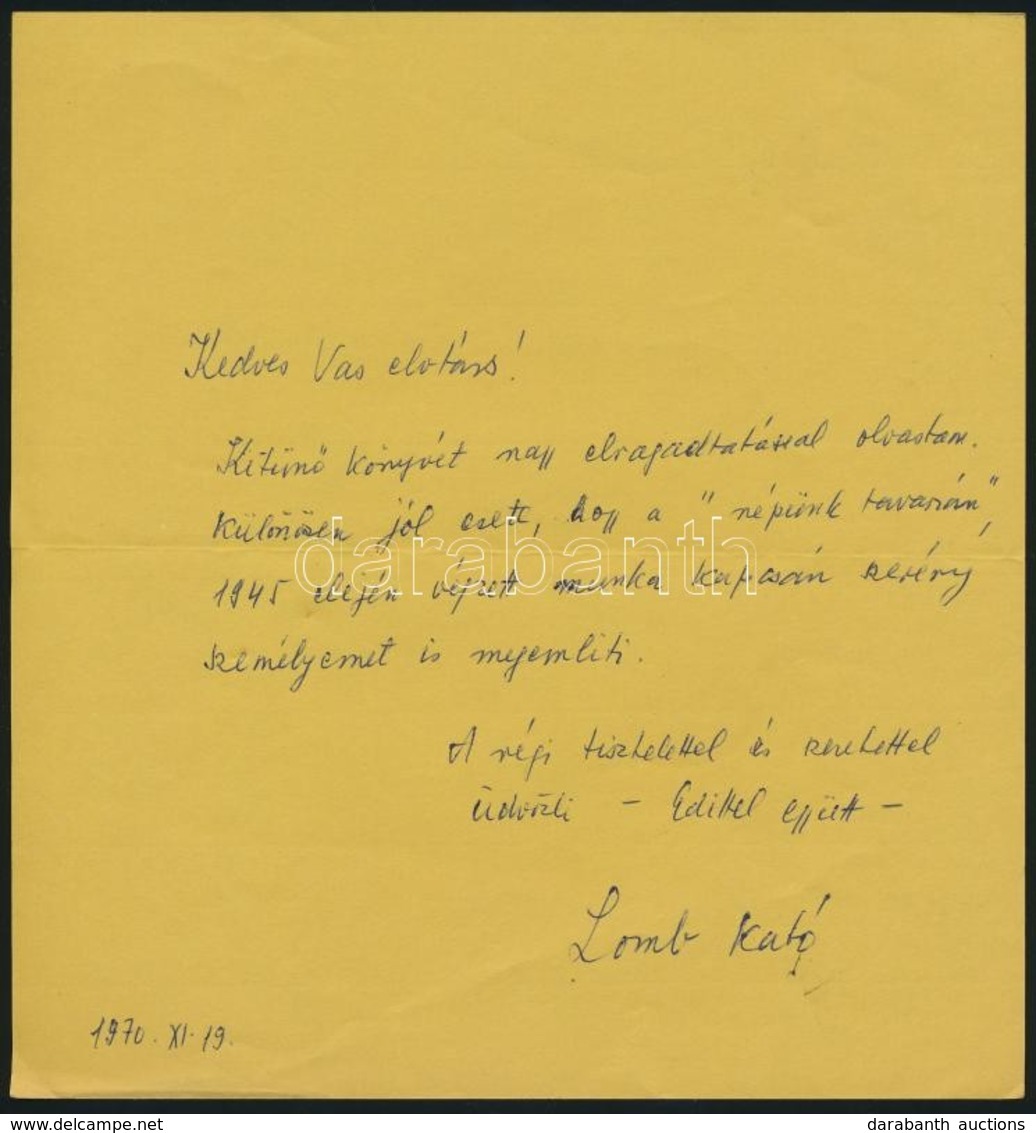 Kedves Vas elvtárs!
Kitünő könyvét nagy elragadtatással olvastam.
Különösen jól esett, hogy a "népünk tavaszán",
1945 elején végzett munka kapcsán szerény
személyemet is megemliti.
A régi tisztelettel és szeretettel
üdvözli - Edittel együtt -
Lomb Kató
1970. XI. 19.
darabanth
delcampe.net
darabanth auctions